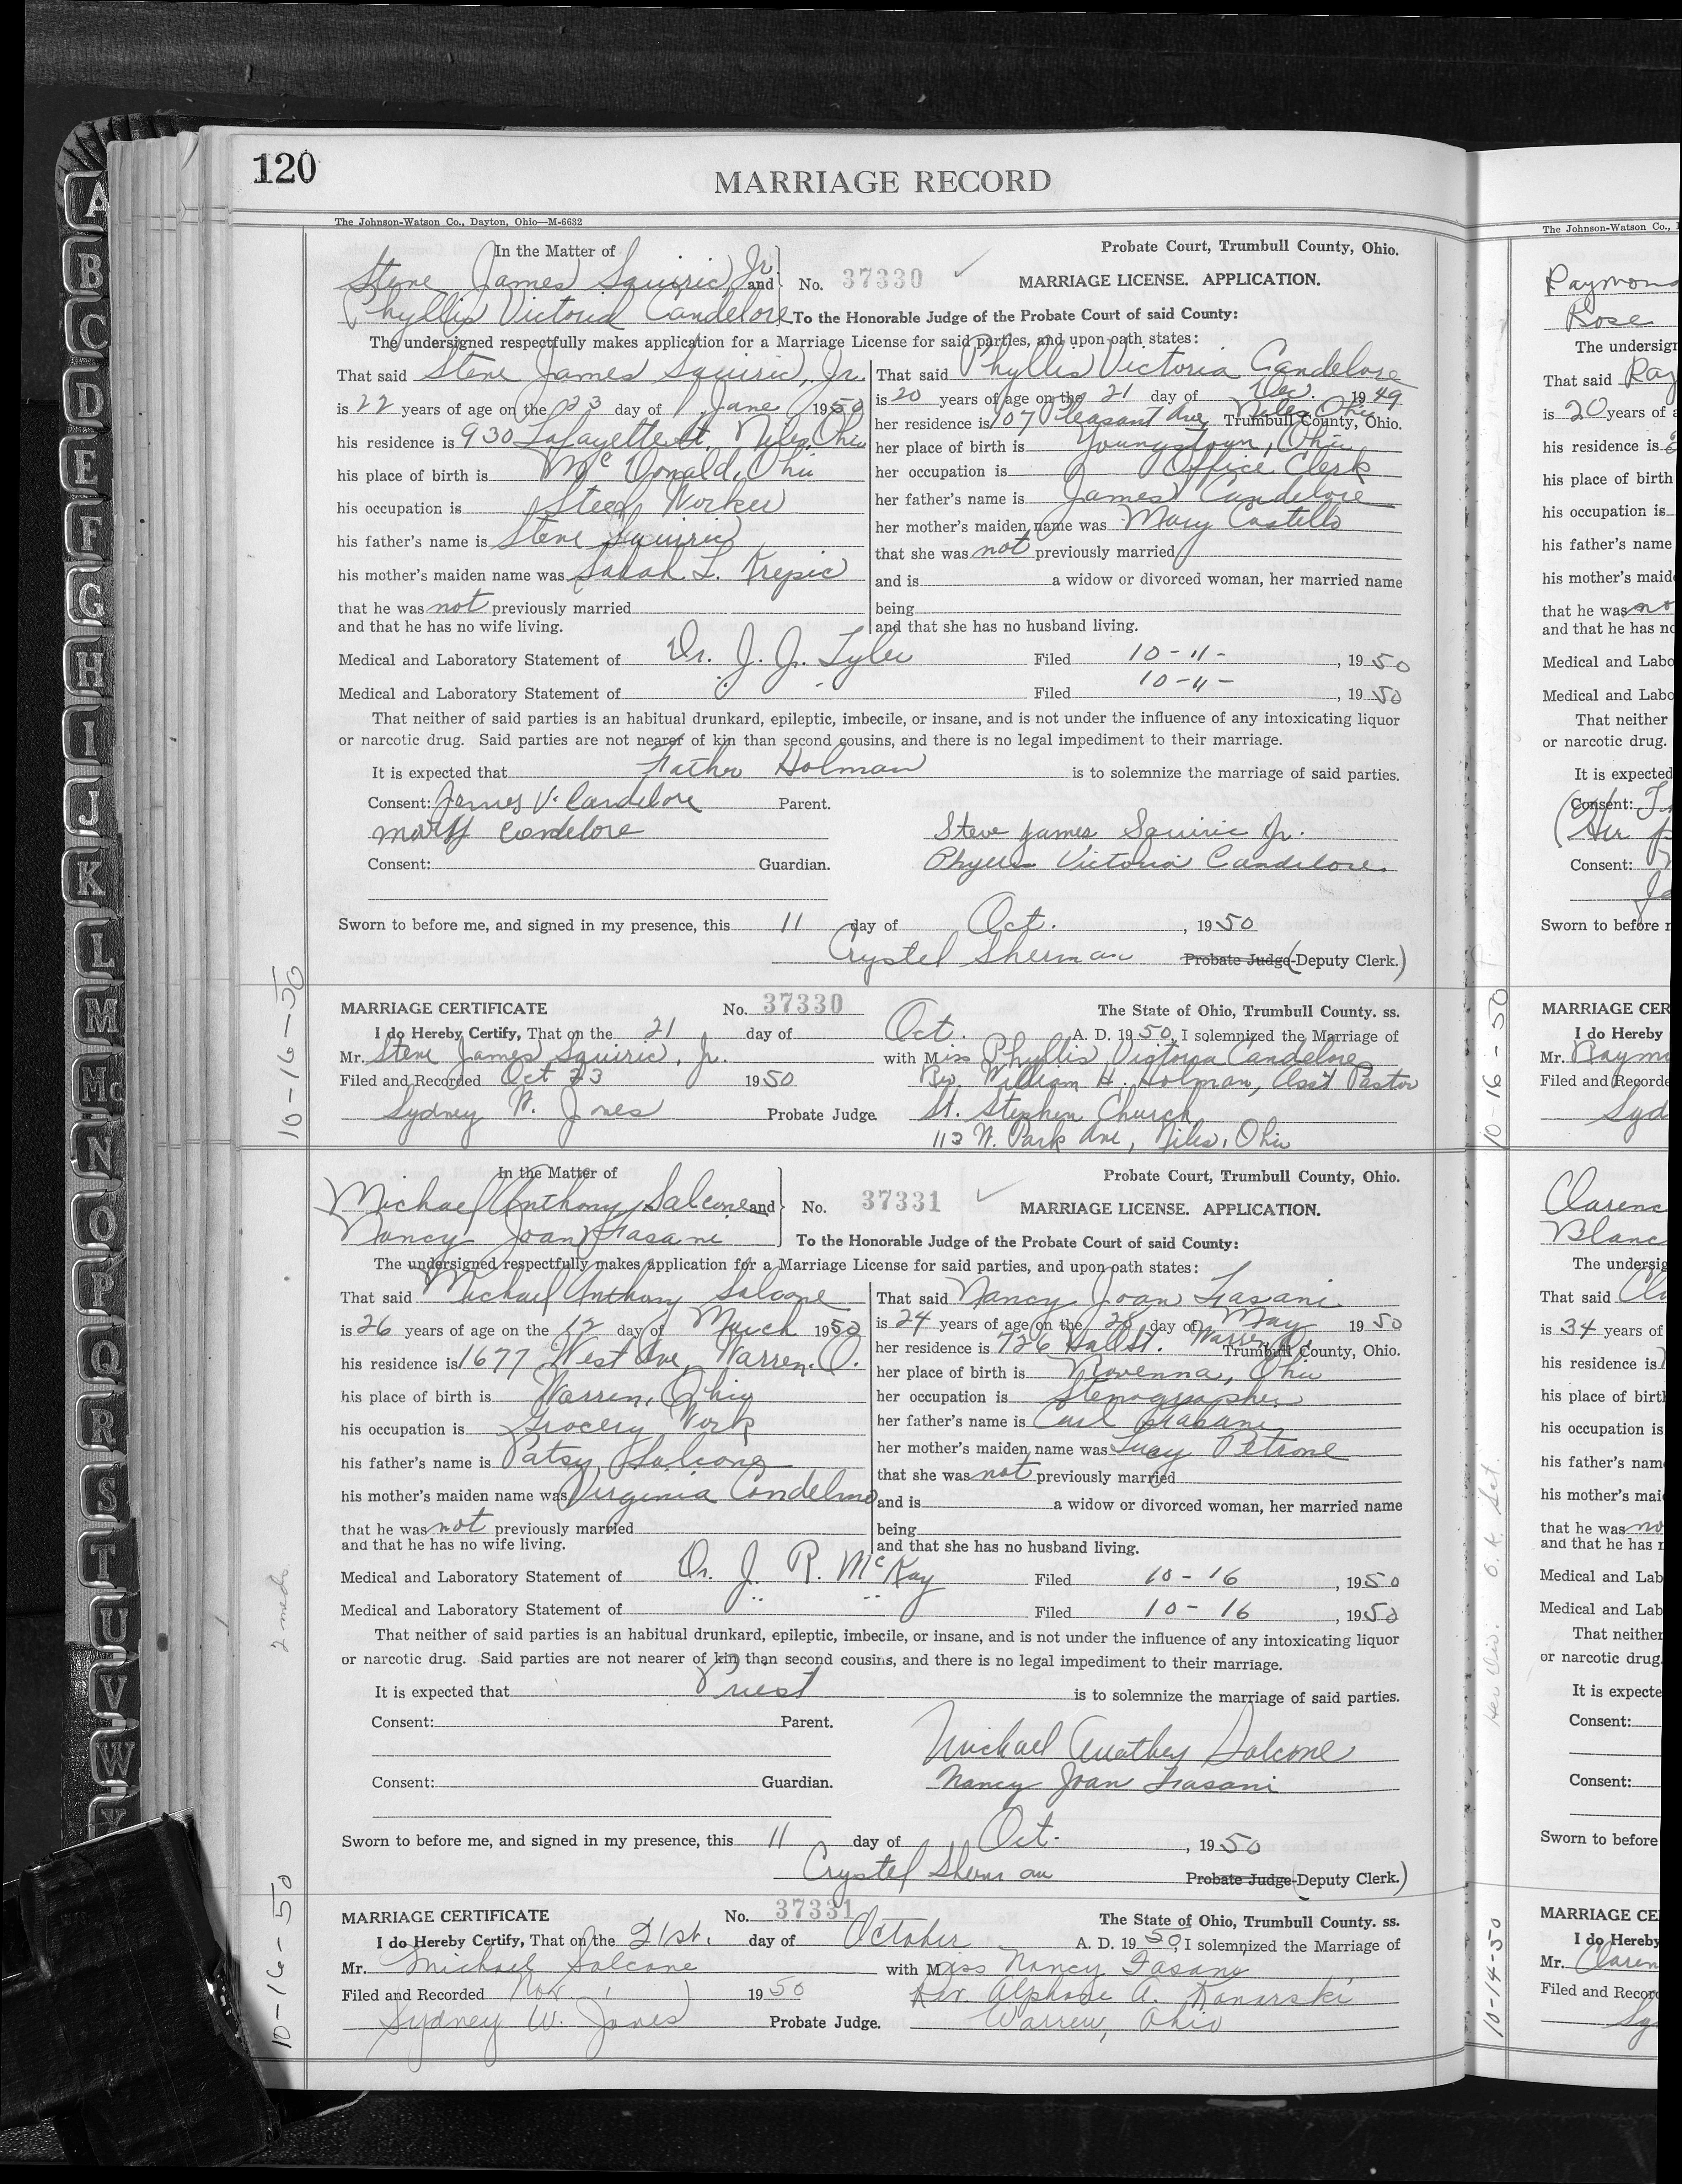 120
MARRIAGE RECORD
The Johnson-Watson Co., Dayton, Ohio—M-6632
In the Matter of
Probate Court, Trumbull County, Ohio.
Steve James Squiric Jr. and
No. 37330 ✓
MARRIAGE LICENSE. APPLICATION.
Phyllis Victoria Candelore
To the Honorable Judge of the Probate Court of said County:
The undersigned respectfully makes application for a Marriage License for said parties, and upon oath states:
That said Steve James Squiric, Jr.
is 22 years of age on the 23 day of June 1950
his residence is 930 Lafayette St. Niles, Ohio
his place of birth is McDonald, Ohio
his occupation is Steel Worker
his father's name is Steve Squiric
his mother's maiden name was Sarah L. Krepic
that he was not previously married
and that he has no wife living.
That said Phyllis Victoria Candelore
is 20 years of age on the 21 day of Dec. 1949
her residence is 107 Pleasant Ave, Niles, Ohio Trumbull County, Ohio.
her place of birth is Youngstown, Ohio
her occupation is Office Clerk
her father's name is James Candelore
her mother's maiden name was Mary Costello
that she was not previously married
and is a widow or divorced woman, her married name
being
and that she has no husband living.
Medical and Laboratory Statement of Dr. J. J. Tyler Filed 10-11-, 1950
Medical and Laboratory Statement of " " Filed 10-11-, 1950
That neither of said parties is an habitual drunkard, epileptic, imbecile, or insane, and is not under the influence of any intoxicating liquor
or narcotic drug. Said parties are not nearer of kin than second cousins, and there is no legal impediment to their marriage.
It is expected that Father Holman is to solemnize the marriage of said parties.
Consent: James V. Candelore Parent.
Mary Candelore
Steve James Squiric Jr.
Consent: Guardian.
Phyllis Victoria Candelore.
Sworn to before me, and signed in my presence, this 11 day of Oct., 1950
Crystel Sherman Probate Judge-(Deputy Clerk.)
10-16-50
MARRIAGE CERTIFICATE No. 37330 The State of Ohio, Trumbull County. ss.
I do Hereby Certify, That on the 21 day of Oct. A. D. 1950, I solemnized the Marriage of
Mr. Steve James Squiric, Jr. with Miss Phyllis Victoria Candelore
Filed and Recorded Oct 23 1950 Rev. William H. Holman, Ass't Pastor
Sydney W. Jones Probate Judge. St. Stephen Church
113 W. Park Ave, Niles, Ohio
In the Matter of
Probate Court, Trumbull County, Ohio.
Michael Anthony Salcone and
No. 37331 ✓
MARRIAGE LICENSE. APPLICATION.
Nancy Joan Fasani
To the Honorable Judge of the Probate Court of said County:
The undersigned respectfully makes application for a Marriage License for said parties, and upon oath states:
That said Michael Anthony Salcone
is 26 years of age on the 12 day of March 1950
his residence is 1677 West Ave, Warren, O.
his place of birth is Warren, Ohio
his occupation is Grocery Work
his father's name is Patsy Salcone
his mother's maiden name was Virginia Condelmo
that he was not previously married
and that he has no wife living.
That said Nancy Joan Fasani
is 24 years of age on the 28 day of May 1950
her residence is 726 Hall St. Warren, O. Trumbull County, Ohio.
her place of birth is Ravenna, Ohio
her occupation is Stenographer
her father's name is Carl Fasani
her mother's maiden name was Lucy Petrone
that she was not previously married
and is a widow or divorced woman, her married name
being
and that she has no husband living.
Medical and Laboratory Statement of Dr. J. R. McKay Filed 10-16, 1950
2 meds
Medical and Laboratory Statement of " " Filed 10-16, 1950
That neither of said parties is an habitual drunkard, epileptic, imbecile, or insane, and is not under the influence of any intoxicating liquor
or narcotic drug. Said parties are not nearer of kin than second cousins, and there is no legal impediment to their marriage.
It is expected that Priest is to solemnize the marriage of said parties.
Consent: Parent.
Michael Anthony Salcone
Consent: Guardian.
Nancy Joan Fasani
Sworn to before me, and signed in my presence, this 11 day of Oct., 1950
Crystel Sherman Probate Judge-(Deputy Clerk.)
10-16-50
MARRIAGE CERTIFICATE No. 37331 The State of Ohio, Trumbull County. ss.
I do Hereby Certify, That on the 21st. day of October A. D. 1950, I solemnized the Marriage of
Mr. Michael Salcone with Miss Nancy Fasani
Filed and Recorded Nov. 1 1950 Rev. Alphose A. Konarski
Sydney W. Jones Probate Judge. Warren, Ohio
A
B
C
D
E
F
G
H
I
J
K
L
M
Mc
N
O
P
Q
R
S
T
U
V
W
The Johnson-Watson Co.,
Raymond
Rose
The undersign
That said Ray
is 20 years of a
his residence is
his place of birth
his occupation is
his father's name
his mother's maid
that he was no
and that he has no
Medical and Labo
Medical and Labo
That neither
or narcotic drug.
It is expected
Consent:
(Her
Consent:
Sworn to before
10-16-50
MARRIAGE CER
I do Hereby
Mr. Raym
Filed and Recorde
Syd
Clarenc
Blanc
The undersig
That said Cla
is 34 years of
his residence is
his place of birt
his occupation is
his father's nam
his mother's mai
that he was no
and that he has
Medical and Lab
Her Div. O.K. Set.
Medical and Lab
That neither
or narcotic drug.
It is expecte
Consent:
Consent:
Sworn to before
10-14-50
MARRIAGE CE
I do Hereby
Mr. Claren
Filed and Recor
Sy